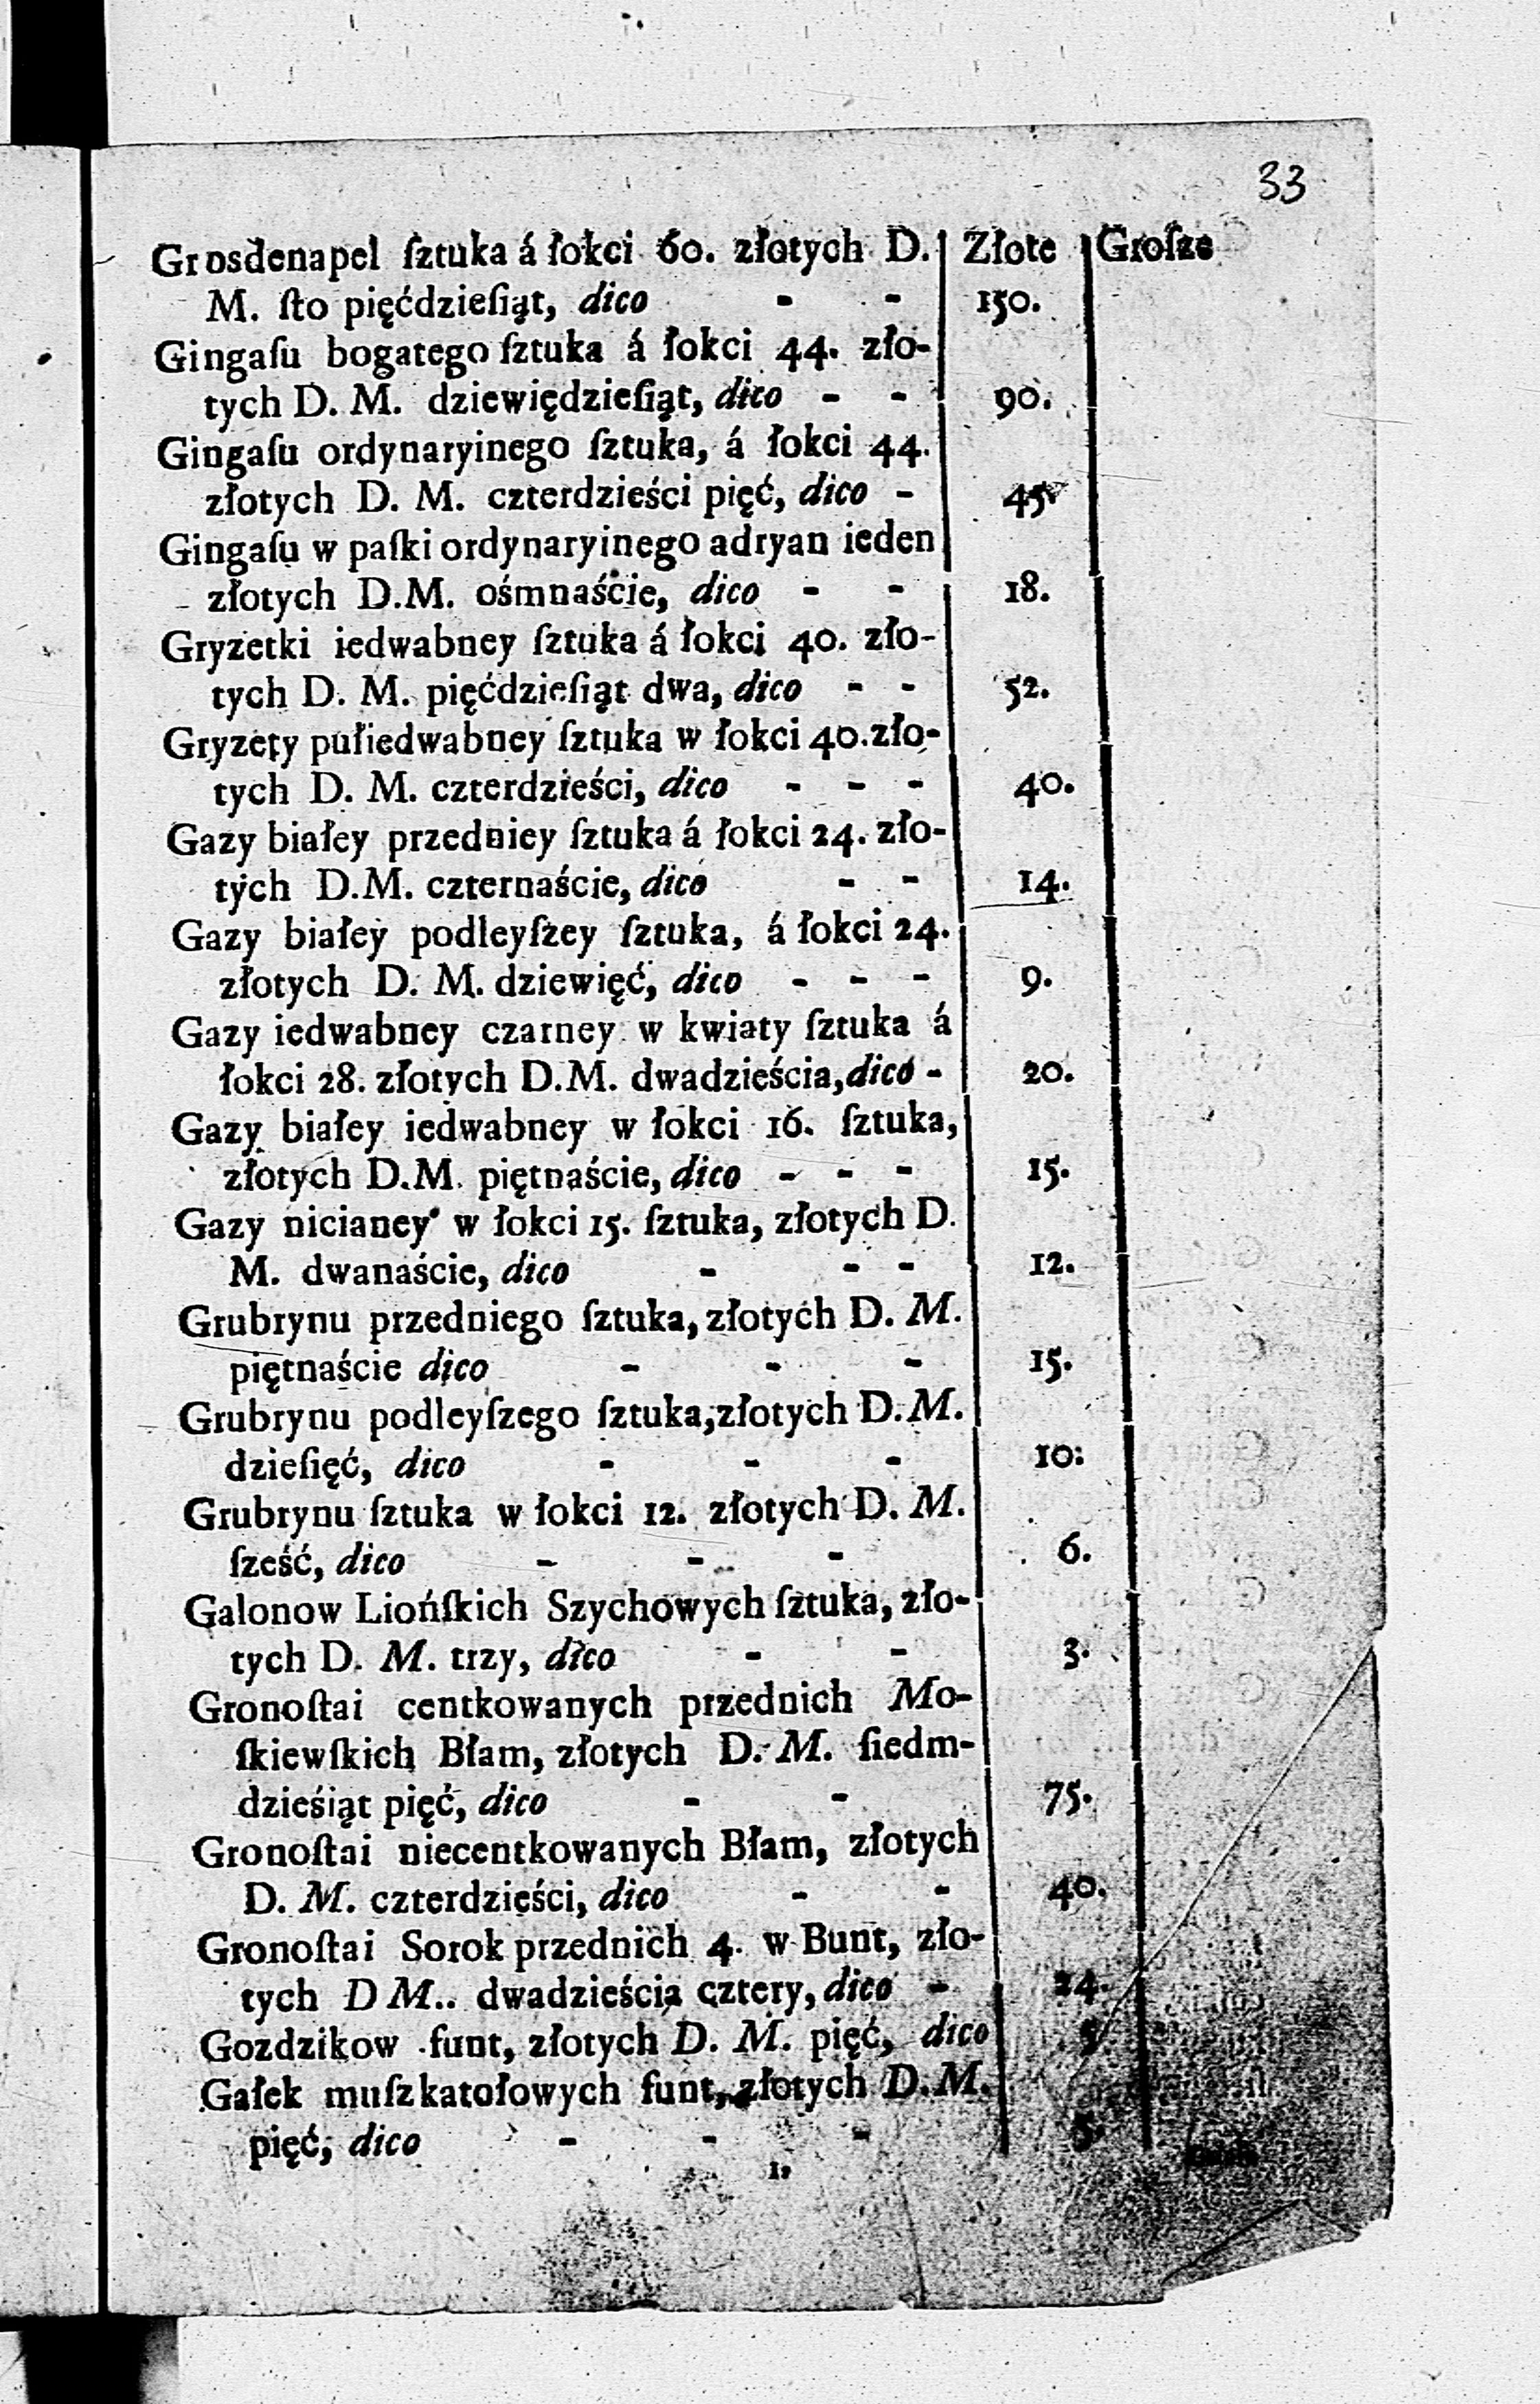 33
Grosdenapel ſztuka á łokci 60. złotych D. Złote Groſze
M. ſto pięćdzieſiąt, dico - - 150.
Gingaſu bogatego ſztuka á łokci 44. zło-
tych D. M. dziewiędzieſiąt, dico - - 90.
Gingaſu ordynaryinego ſztuka, á łokci 44.
złotych D. M. czterdzieści pięć, dico - 45.
Gingaſu w paſki ordynaryinego adryan ieden
złotych D.M. ośmnaście, dico - - 18.
Gryzetki iedwabney ſztuka á łokci 40. zło-
tych D. M. pięćdzieſiąt dwa, dico - - 52.
Gryzety pułiedwabney ſztuka w łokci 40.zło-
tych D. M. czterdzieści, dico - - - 40.
Gazy białey przedniey ſztuka á łokci 24. zło-
tych D.M. czternaście, dico - - 14.
Gazy białey podleyſzey ſztuka, á łokci 24.
złotych D. M. dziewięć, dico - - - 9.
Gazy iedwabney czarney w kwiaty ſztuka á
łokci 28. złotych D.M. dwadzieścia, dico - 20.
Gazy białey iedwabney w łokci 16. ſztuka,
złotych D.M. piętnaście, dico - - - 15.
Gazy nicianey w łokci 15. ſztuka, złotych D.
M. dwanaście, dico - - - 12.
Grubrynu przedniego ſztuka, złotych D. M.
piętnaście dico - - - 15.
Grubrynu podleyſzego ſztuka, złotych D. M.
dzieſięć, dico - - - 10:
Grubrynu ſztuka w łokci 12. złotych D. M.
ſześć, dico - - - 6.
Galonow Liońſkich Szychowych ſztuka, zło-
tych D. M. trzy, dico - - 3.
Gronoſtai centkowanych przednich Mo-
ſkiewſkich Błam, złotych D. M. ſiedm-
dzieśiąt pięć, dico - - 75.
Gronoſtai niecentkowanych Błam, złotych
D. M. czterdzieści, dico - - 40.
Gronoſtai Sorok przednich 4. w Bunt, zło-
tych D M.. dwadzieścia cztery, dico - 24.
Gozdzikow funt, złotych D. M. pięć, dico 5.
Gałek muſzkatołowych funt, złotych D.M.
pięć, dico - - - 5.
I,